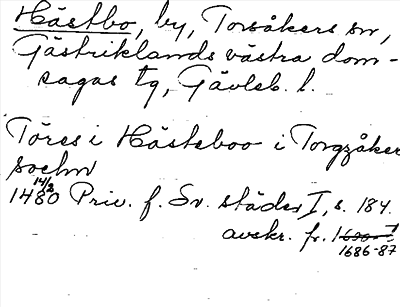 Hästbo, by, Torsåkers sn,
Gästriklands västra dom-
sagas tg, Gävleb. l.
Töres i Hästeboo i Torgzåker
soehn
14/8
1480 Priv. f. Sv. städer I, s. 184.
avskr. fr.
1686-87